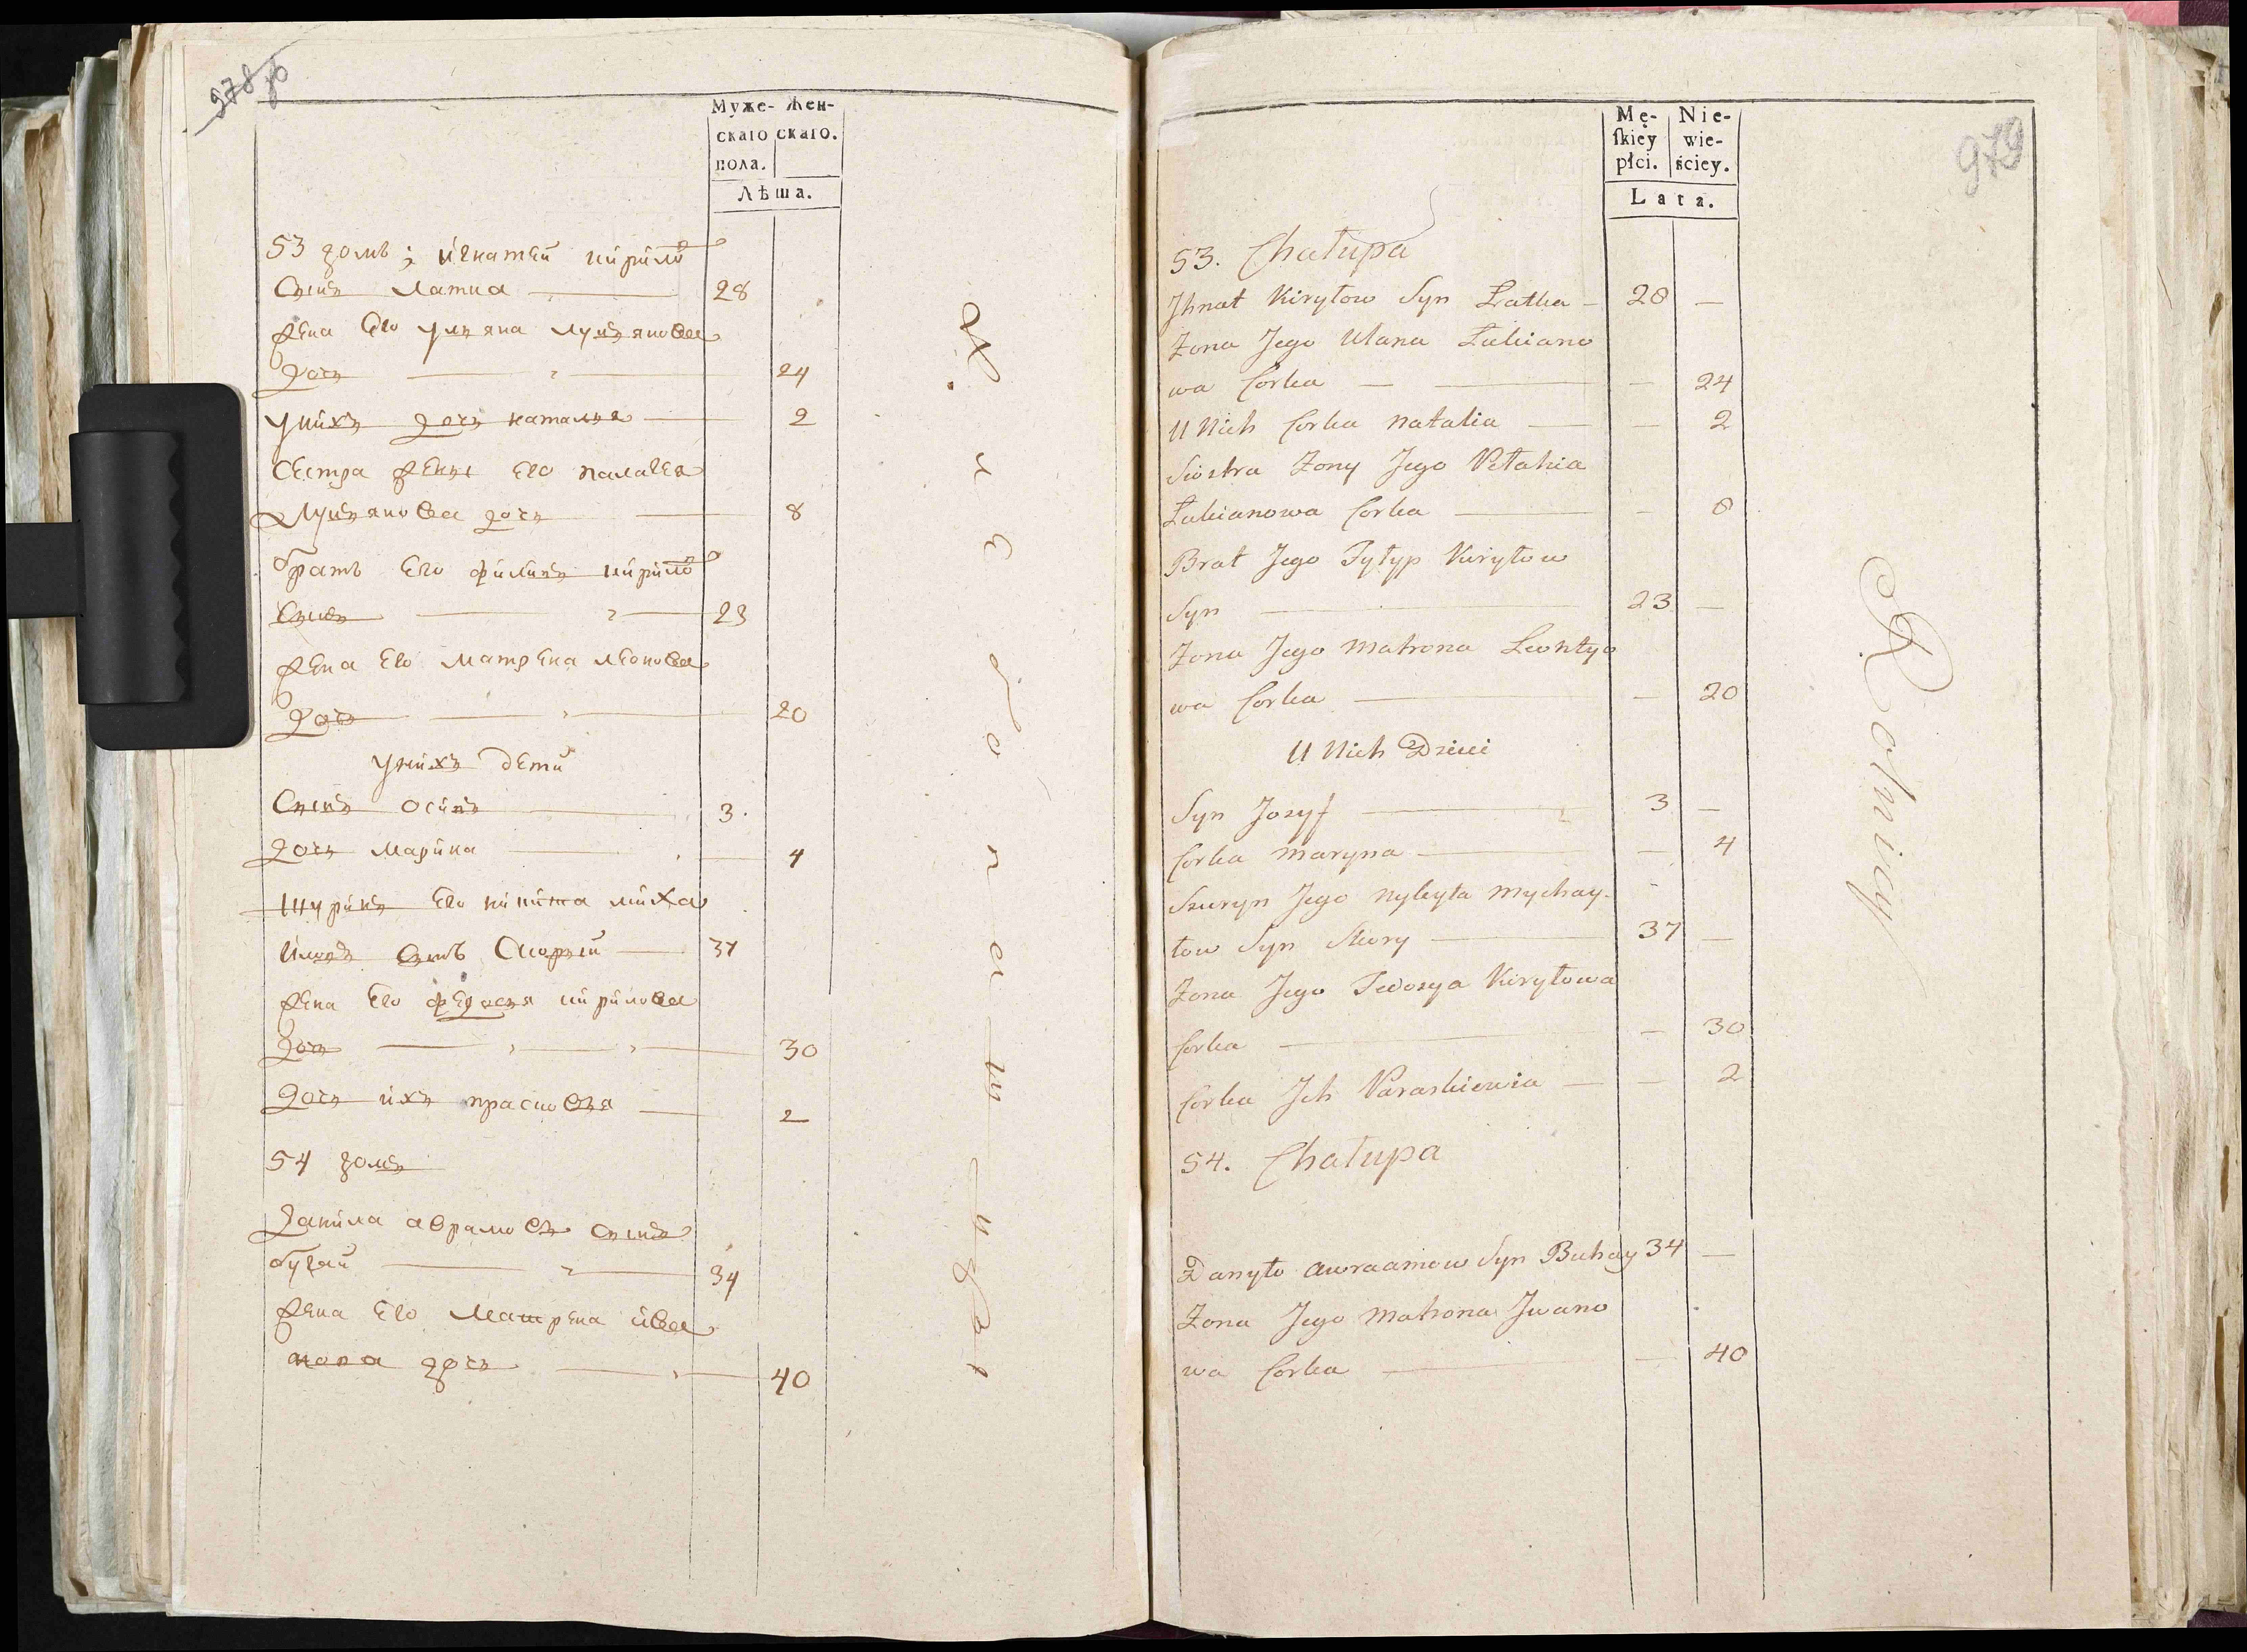 278 об
Муже- Жен-
скаго скаго.
пола.
Лѣта.
53 домъ; игнатей кирило
Сынъ латка 28
жена Его ульяна лукьянова
дочь 24
унихъ дочь наталья 2
Сестра жены Его палагея
Лукьянова дочь 8
братъ Его филипъ кирило
Сынъ 23
жена Его матрена леонова
дочь 20
унихъ дети
Сынъ осипъ 3.
дочь марина 4
шуринъ Его никита миха
йловъ сынъ Скорый 37
жена Его федосья кирилова
дочь 30
дочь ихъ прасковья 2
54 домъ
данила аврамовъ сынъ
бугай 34
жена Его Матрена ива
нова дочь 40
хлѣбопашцы
979
Mę- Nie-
ſkiey wie-
płci. ściey.
Lata.
53. Chałupa
Jhnat Kiryłow Syn Łatka — 28 —
Żona Jego Ulana Łukiano
wa Corka — — — 24
U Nich Corka Natalia — — 2
Siostra Żony Jego Pełahia
Łukianowa Corka — — 8
Brat Jego Fyłyp Kiryłow
Syn — 23 —
Żona Jego Matrona Leontyo
wa Corka — — 20
U Nich Dzieci
Syn Jozyf — 3 —
Corka Maryna — — 4
Szuryn Jego Nykyta Mychay-
łow Syn Skory — 37 —
Żona Jego Fedosya Kiryłowa
Corka — — 30
Corka Jch Paraskiewia — — 2
54. Chałupa
Danyło Awraamow Syn Buhay 34 —
Żona Jego Matrona Jwano
wa Corka — — 40
Rolnicy